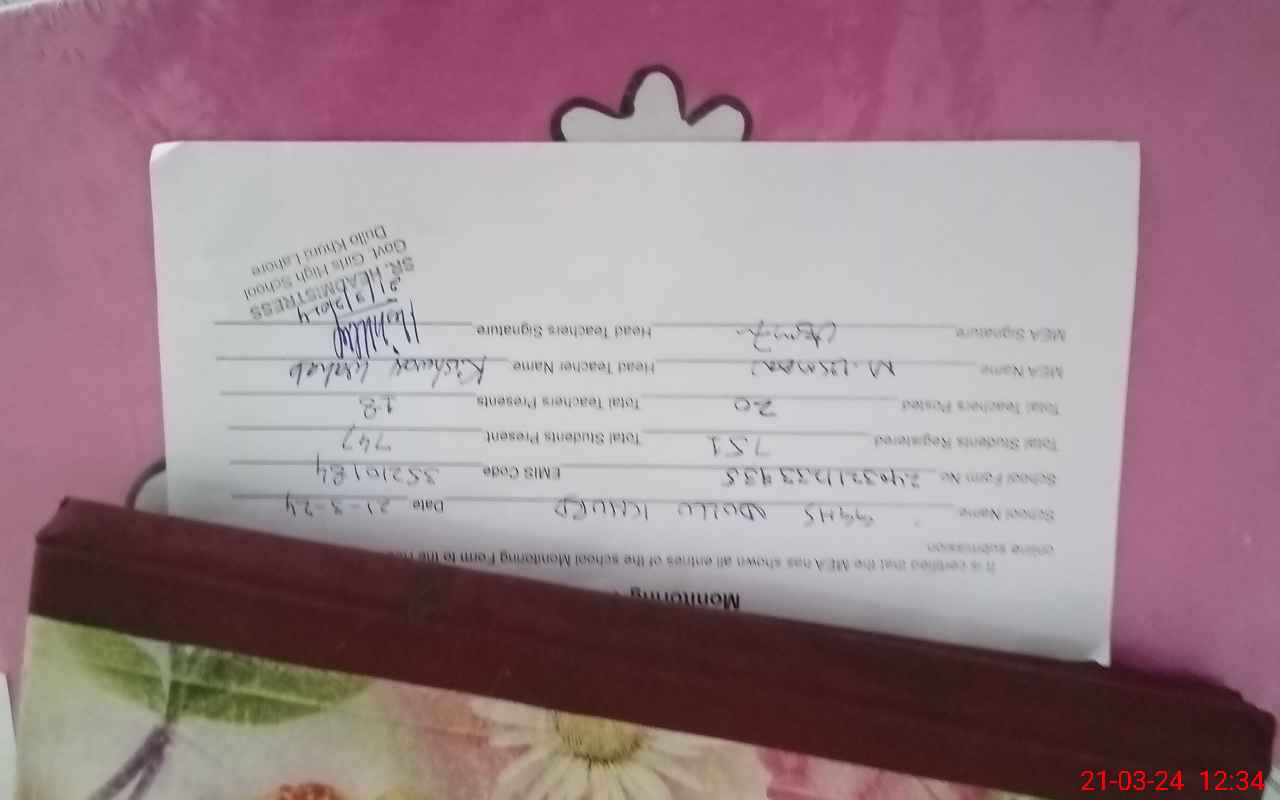 Monitoring
It is certified that the MEA has shown all entries of the school Monitoring Form to the
online submission
School Name GGHS DULLU KHURD Date 21-3-24
School Form No 240321123393S EMIS Code 35210184
Total Students Registered 751 Total Students Present 747
Total Teachers Posted 20 Total Teachers Presents 18
MEA Name M. USMAN Head Teacher Name Kishwar Wahab
MEA Signature Head Teachers Signature
21/3/2024
SR. HEADMISTRESS
Govt. Girls High School
Dullo Khurd Lahore
21-03-24 12:34